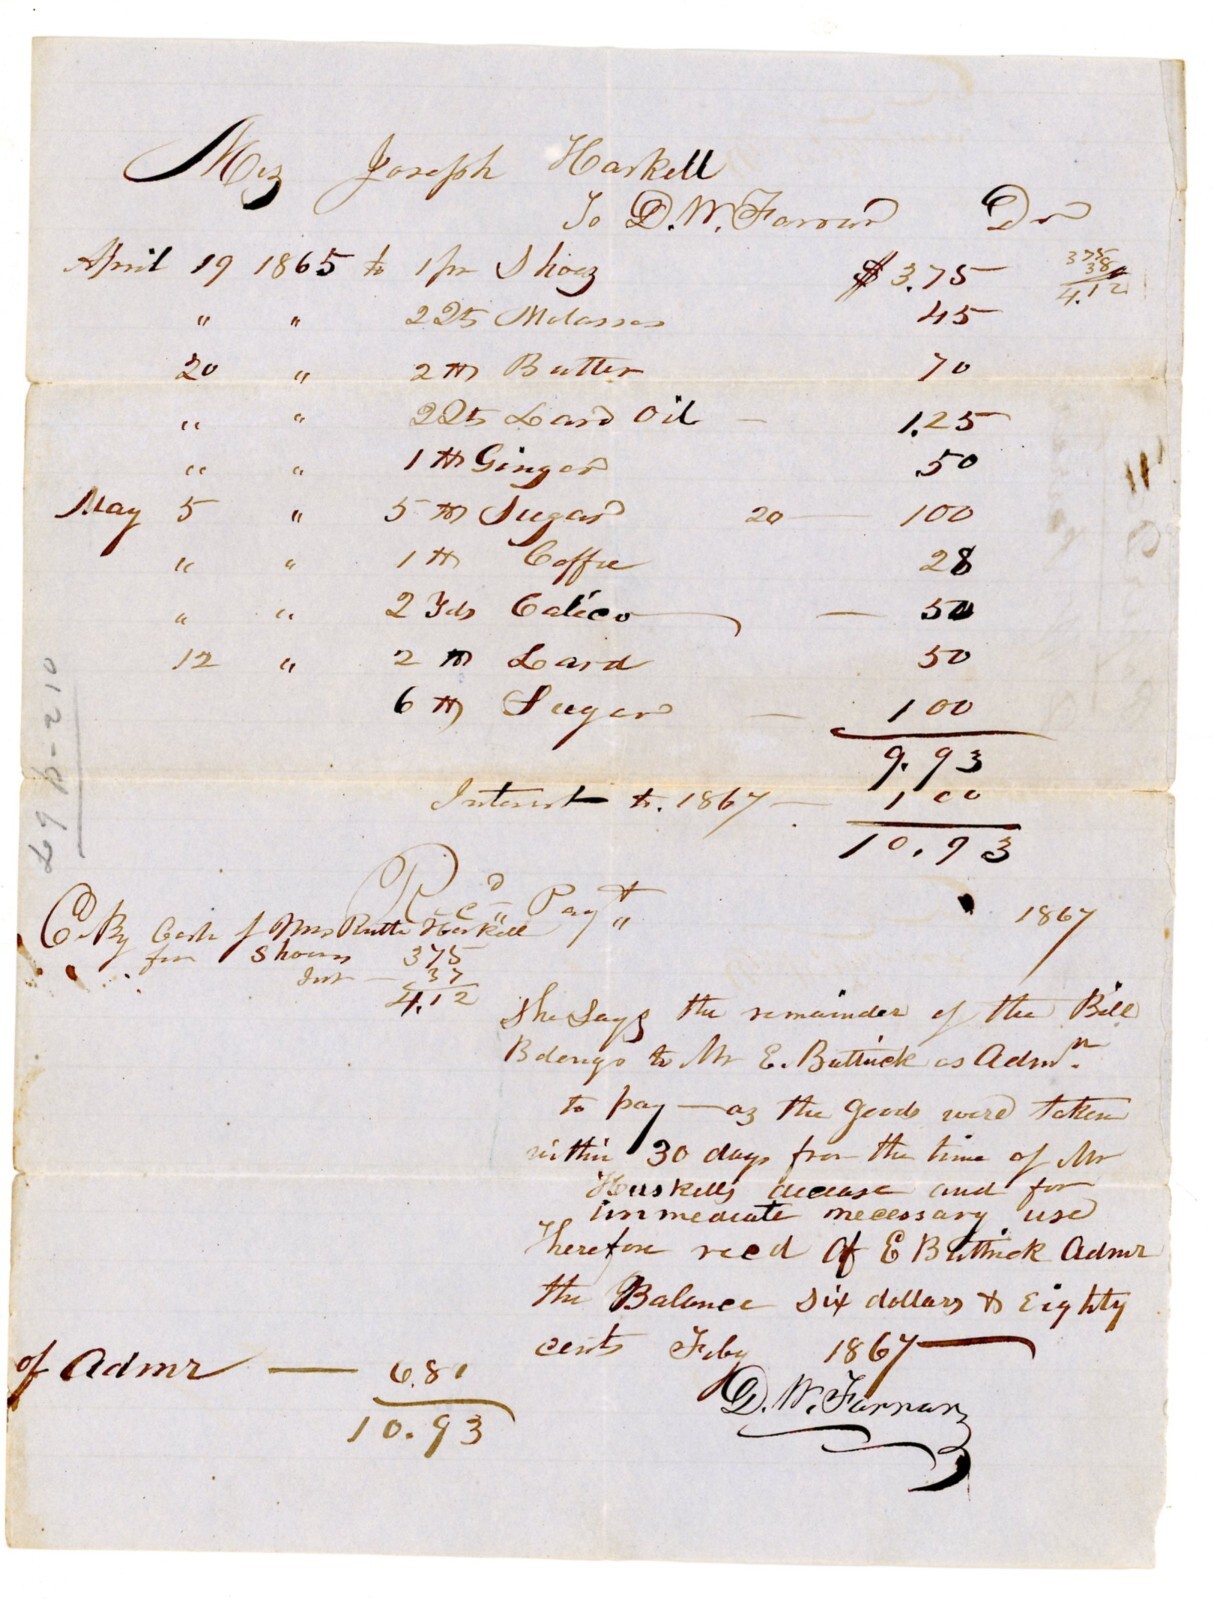 Mrs Joseph Haskell
To D. W. Farrar Dr
April 19 1865 to 1 pr Shoes $3.75
375
38
4.12
" " 2 Qts Molasses 45
20 " 2 lb Butter 70
" " 2 Qts Lard Oil — 1.25
" " 1 lb Ginger .50
May 5 " 5 lb Sugar 20 — 100
" " 1 lb Coffee 28
" " 2 Yds Calico — 50
12 " 2 lb Lard 50
6 lb Sugar — 100
9.93
Interest to. 1867 — 100
10.93
Rec'd Payt 1867
Cr. By Cash of Mrs Ruth Haskell
for Shoes 375
Int — 37
4.12
She Says the remainder of the Bill
Belongs to Mr E. Buttrick as Admr.
to pay — as the goods were taken
within 30 days from the time of Mr
Haskells decease and for
immediate necessary use
Therefore recd of E Buttrick Admr
the Balance Six dollars & Eighty
cents Feby 1867
of Admr — 6.81
10.93
D. W. Farrar